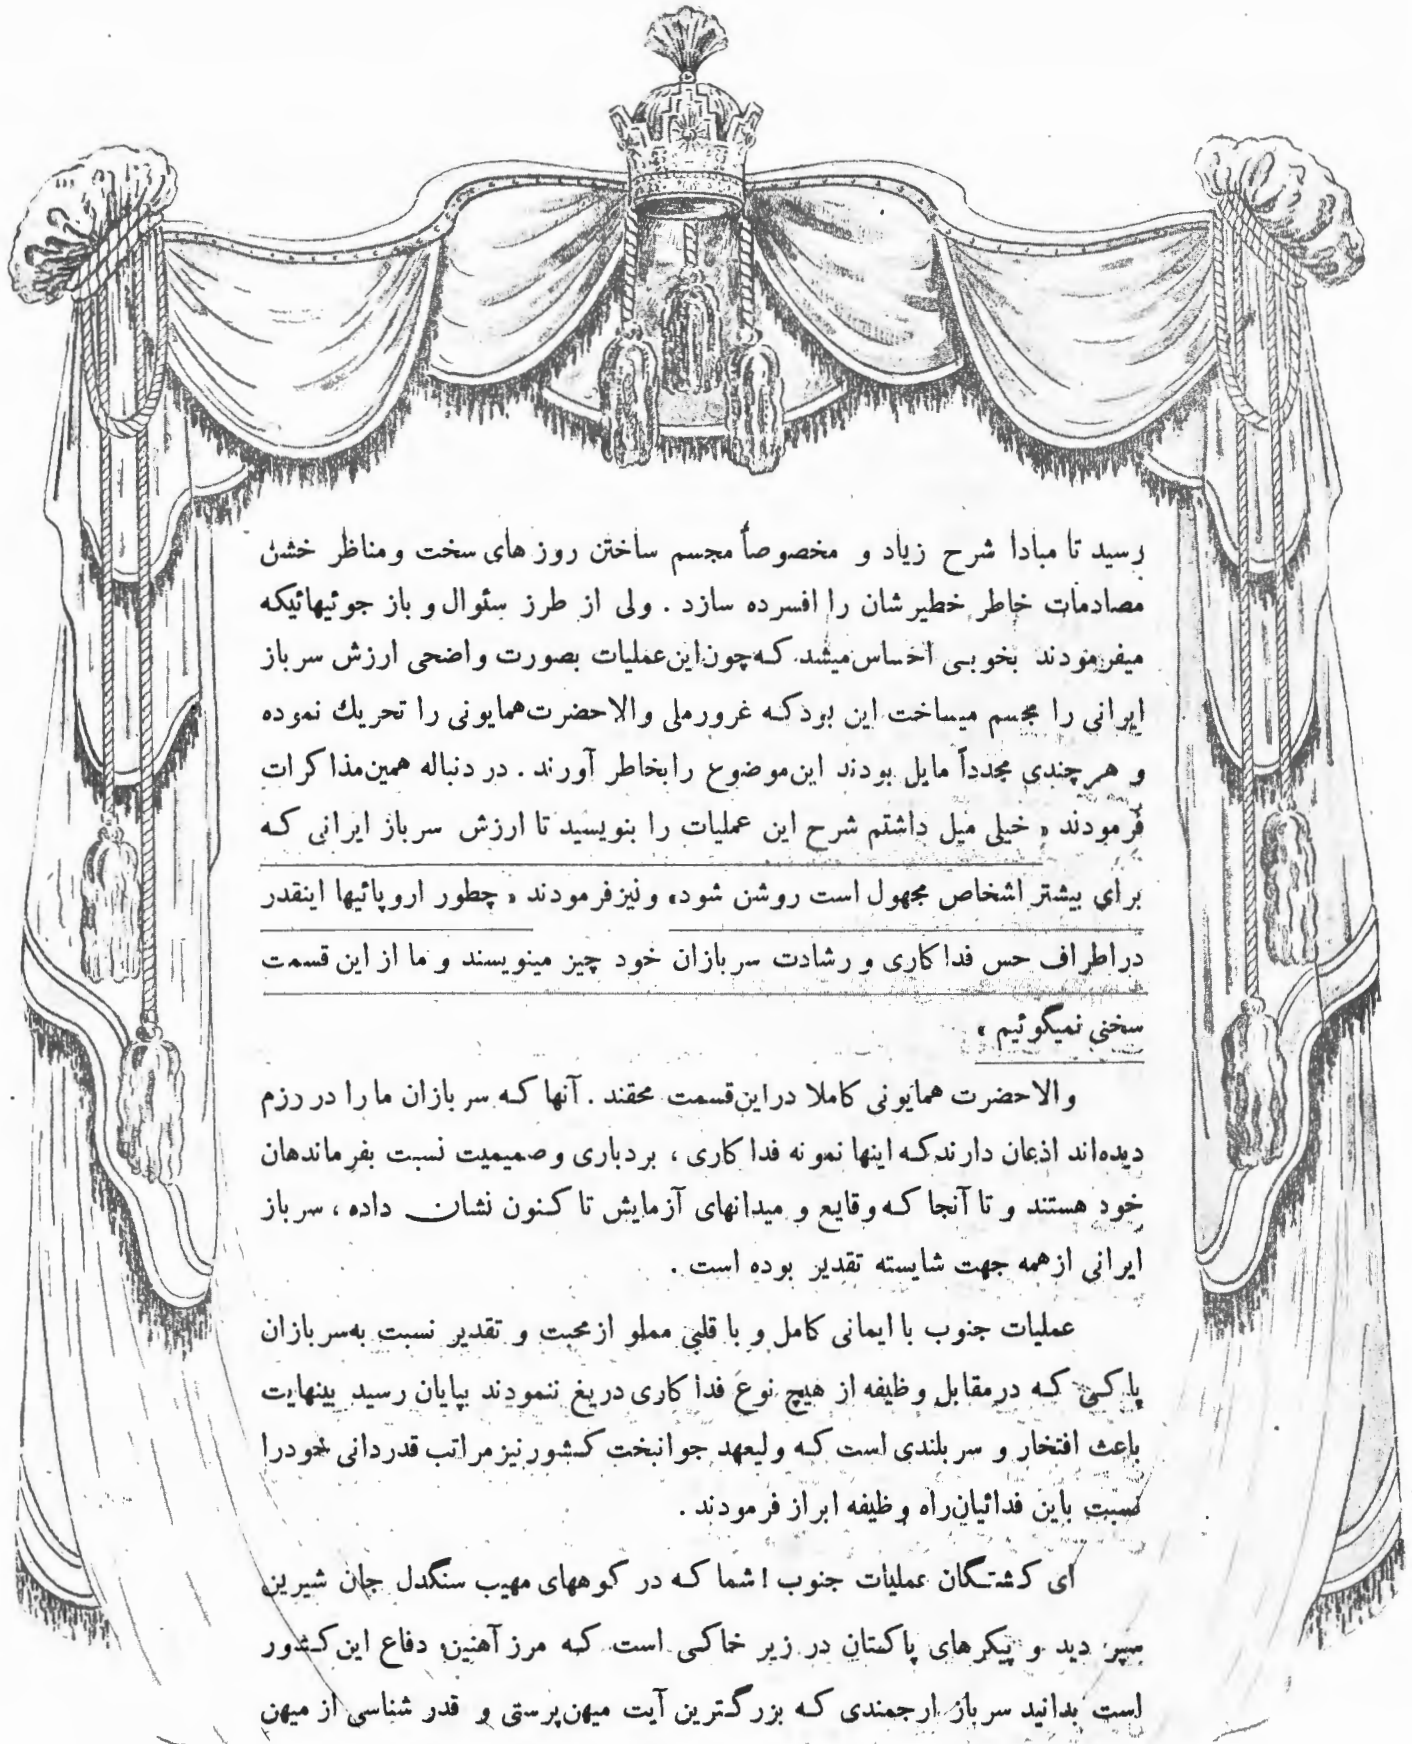 رسید تا مبادا شرح زیاد و مخصوصاً مجسم ساختن روز های سخت ومناظر خشن
مصادمات خاطر خطیرشان را افسرده سازد . ولی از طرز سئوال و باز جوئیهائیکه
میفرمودند بخوبی احساس میشد که چون این عملیات بصورت واضحی ارزش سرباز
ایرانی را مجسم میساخت این بود که غرور ملی والاحضرت همایونی را تحریك نموده
و هر چندی مجدداً مایل بودند این موضوع را بخاطر آورند . در دنباله همین مذاکرات
فرمودند « خیلی میل داشتم شرح این عملیات را بنویسید تا ارزش سرباز ایرانی که
برای بیشتر اشخاص مجهول است روشن شود» ونیز فرمودند « چطور اروپائیها اینقدر
در اطراف حس فداکاری و رشادت سربازان خود چیز مینویسند و ما از این قسمت
سخنی نمیگوئیم »
والاحضرت همایونی کاملا در این قسمت محقند . آنها که سربازان ما را در رزم
دیده‌اند اذعان دارند که اینها نمونه فداکاری ، بردباری و صمیمیت نسبت بفرماندهان
خود هستند و تا آنجا که وقایع و میدانهای آزمایش تا کنون نشان داده ، سرباز
ایرانی از همه جهت شایسته تقدیر بوده است .
عملیات جنوب با ایمانی کامل و با قلبی مملو از محبت و تقدیر نسبت به سربازان
پاکی که در مقابل وظیفه از هیچ نوع فداکاری دریغ ننمودند بپایان رسید بینهایت
باعث افتخار و سربلندی است که ولیعهد جوانبخت کشور نیز مراتب قدردانی خودرا
نسبت باین فدائیان راه وظیفه ابراز فرمودند .
ای کشتگان عملیات جنوب ! شما که در کوههای مهیب سنگدل جان شیرین
سپردید و پیکرهای پاکتان در زیر خاکی است که مرز آهنین دفاع این کشور
است بدانید سرباز ارجمندی که بزرگترین آیت میهن پرستی و قدر شناسی از میهن